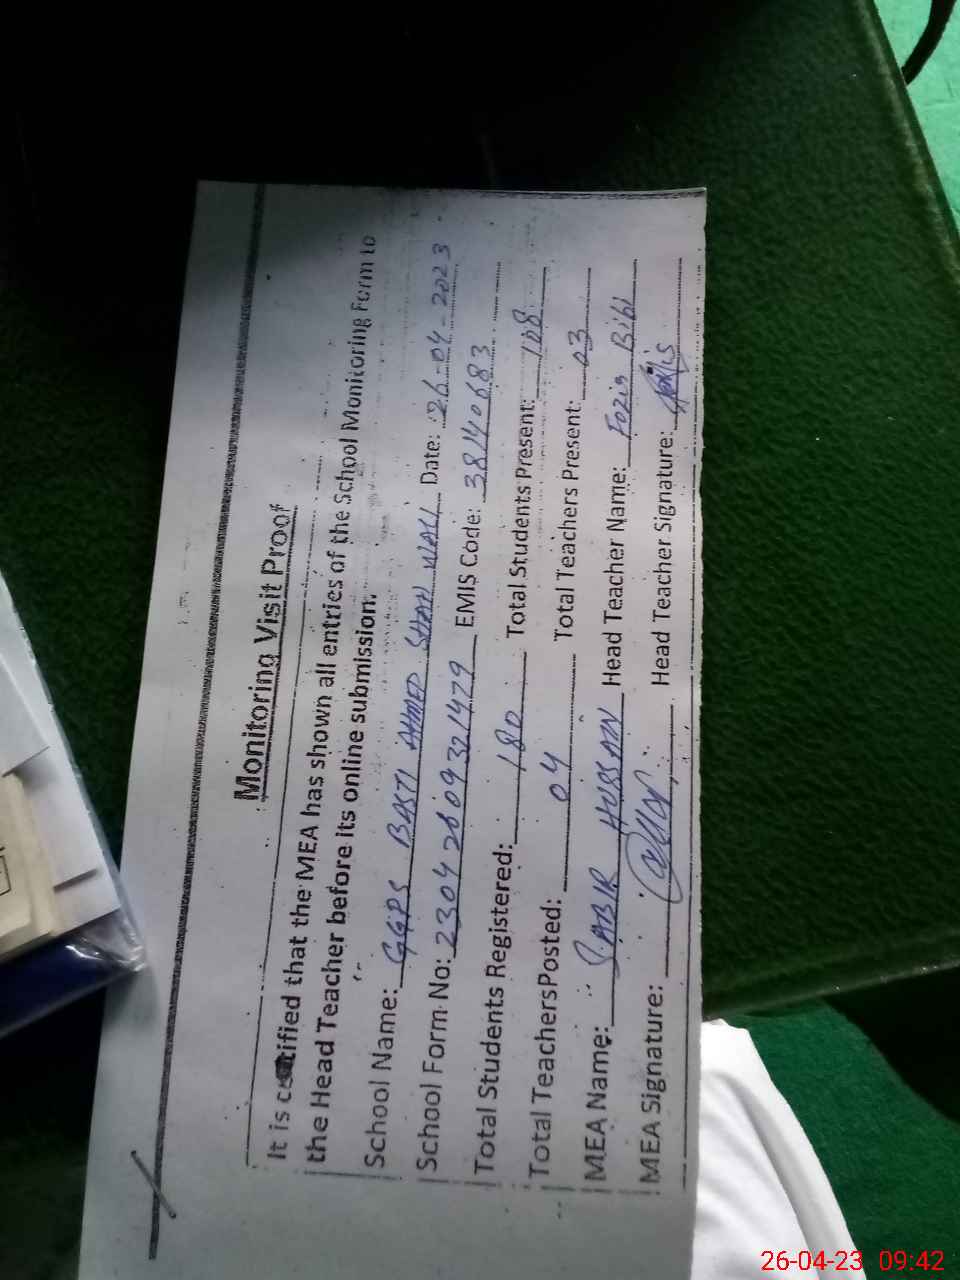 Monitoring Visit Proof
It is certified that the MEA has shown all entries of the School Monitoring Form to
the Head Teacher before its online submission.
School Name: GGPS BASTI AHMED SHAH WALI Date: 26-04-2023
School Form No: 230428609321479 EMIS Code: 38140683
Total Students Registered: 180 Total Students Present: 108
Total TeachersPosted: 04 Total Teachers Present: 03
MEA Name: SABIR HUSSAIN Head Teacher Name: Fozia Bibi
MEA Signature: Head Teacher Signature:
26-04-23 09:42